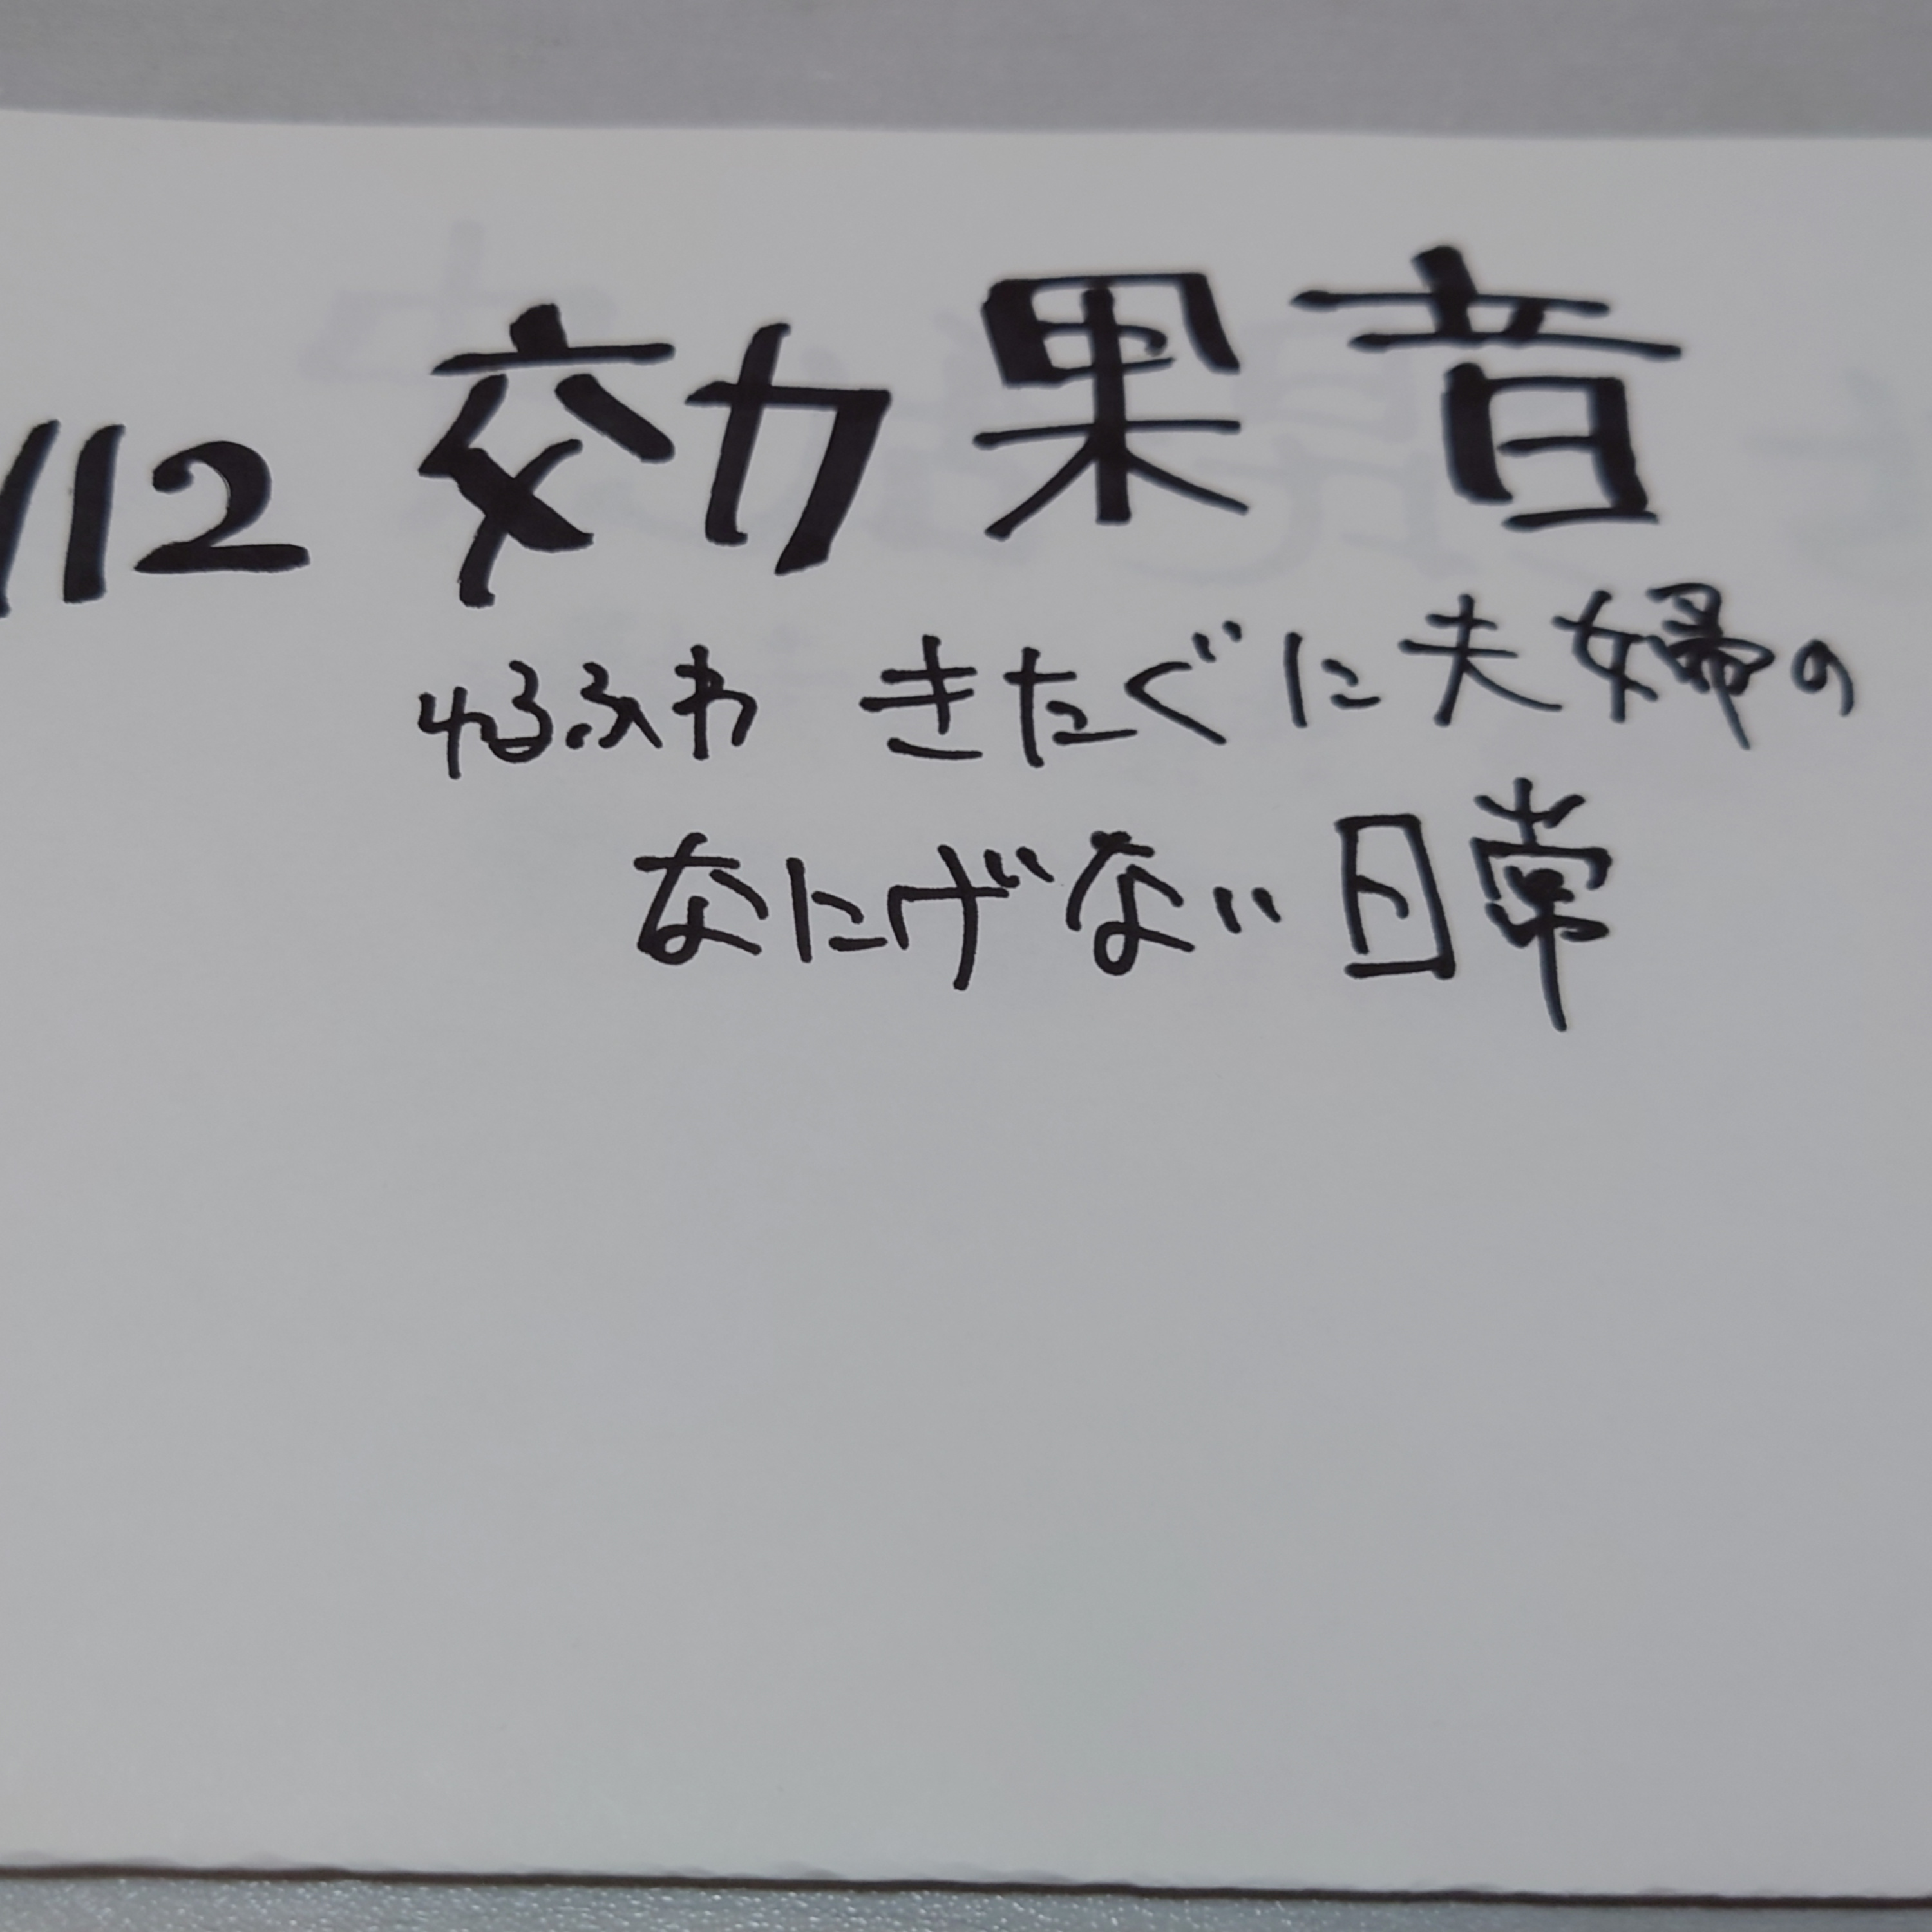 112 効果音
ゆるふわ きたぐに夫婦の
なにげない日常